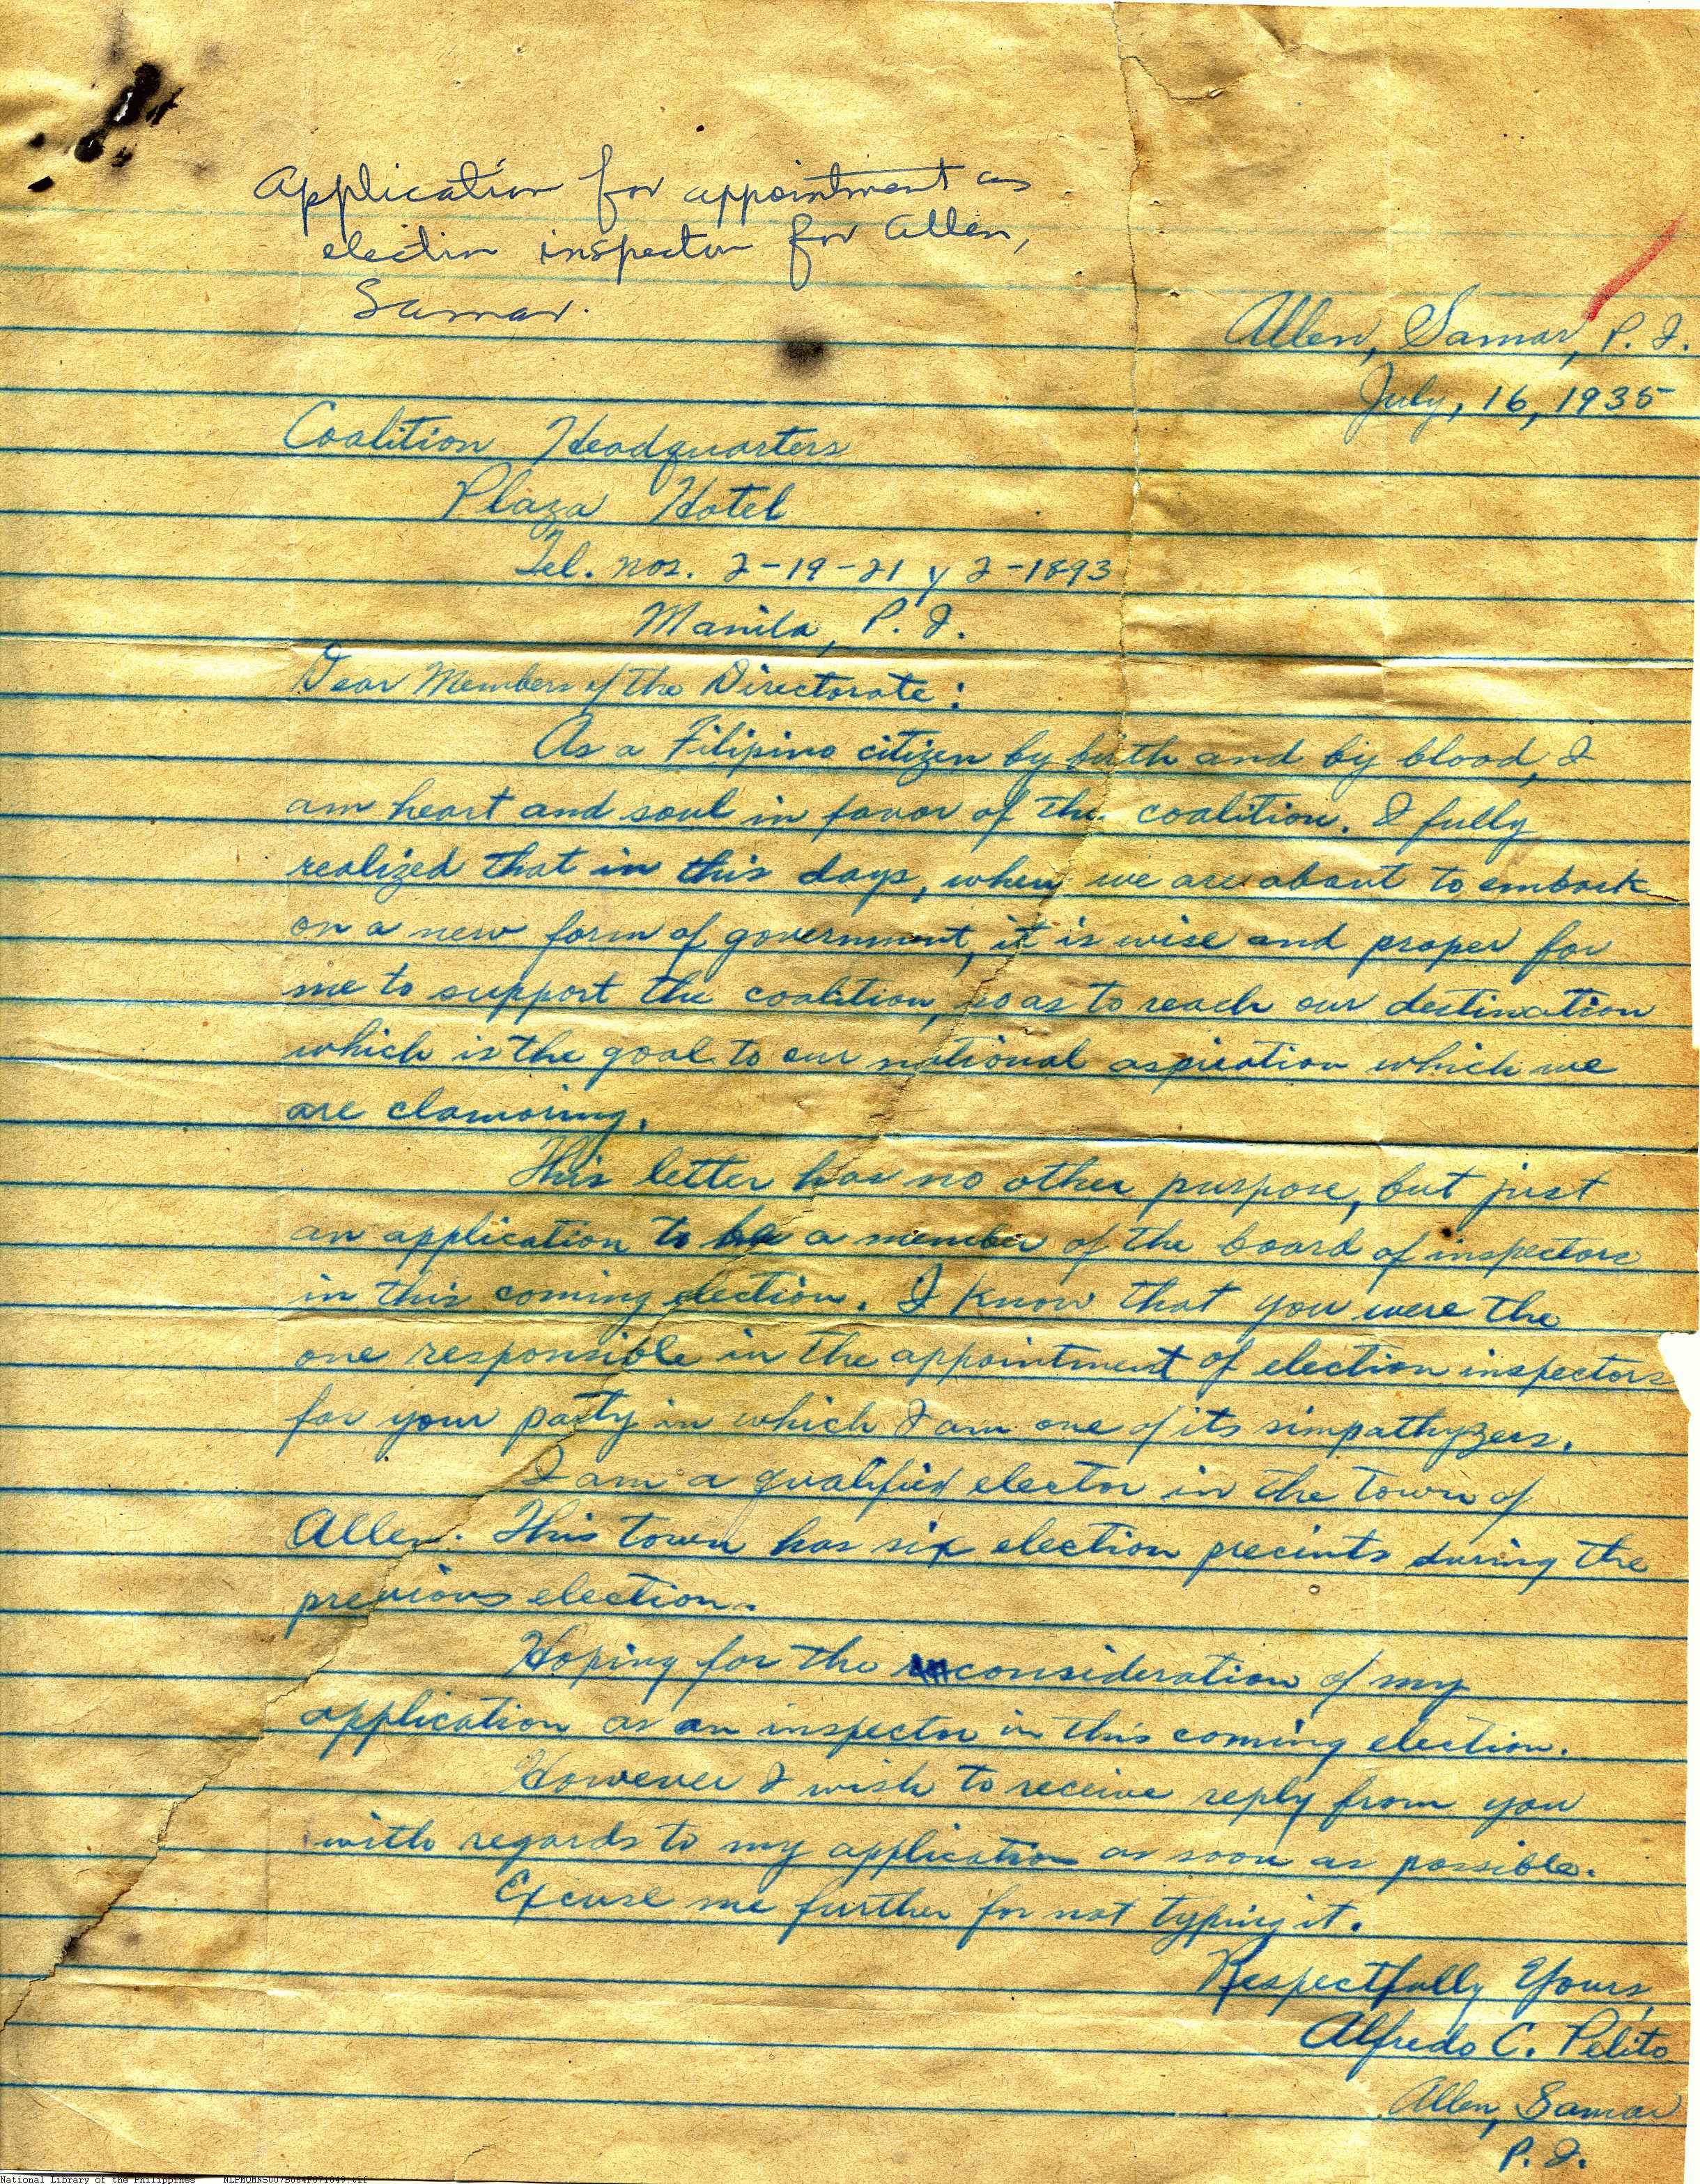 Application for appointment as
election inspector for Allen,
Samar.
Allen, Samar, P. I.
July, 16, 1935
Coalition Headquarters
Plaza Hotel
Tel. nos. 2-19-21 y 2-1893
Manila, P. I.
Dear Members of the Directorate:
As a Filipino citizen by birth and by blood, I
am heart and soul in favor of the coalition. I fully
realized that in this days, when we are about to embark
on a new form of government, it is wise and proper for
me to support the coalition, so as to reach our destination
which is the goal to our national aspiration which we
are clamoring.
This letter has no other purpose, but just
an application to be a member of the board of inspectors
in this coming election. I know that you were the
one responsible in the appointment of election inspectors
for your party in which I am one of its simpathyzers.
I am a qualified elector in the town of
Allen. This town has six election precints during the
previous election.
Hoping for the consideration of my
application as an inspector in this coming election.
However I wish to receive reply from you
with regards to my application as soon as possible.
Excuse me further for not typing it.
Respectfully Yours,
Alfredo C. Pelito
Allen, Samar
P. I.
National Library of the Philippines